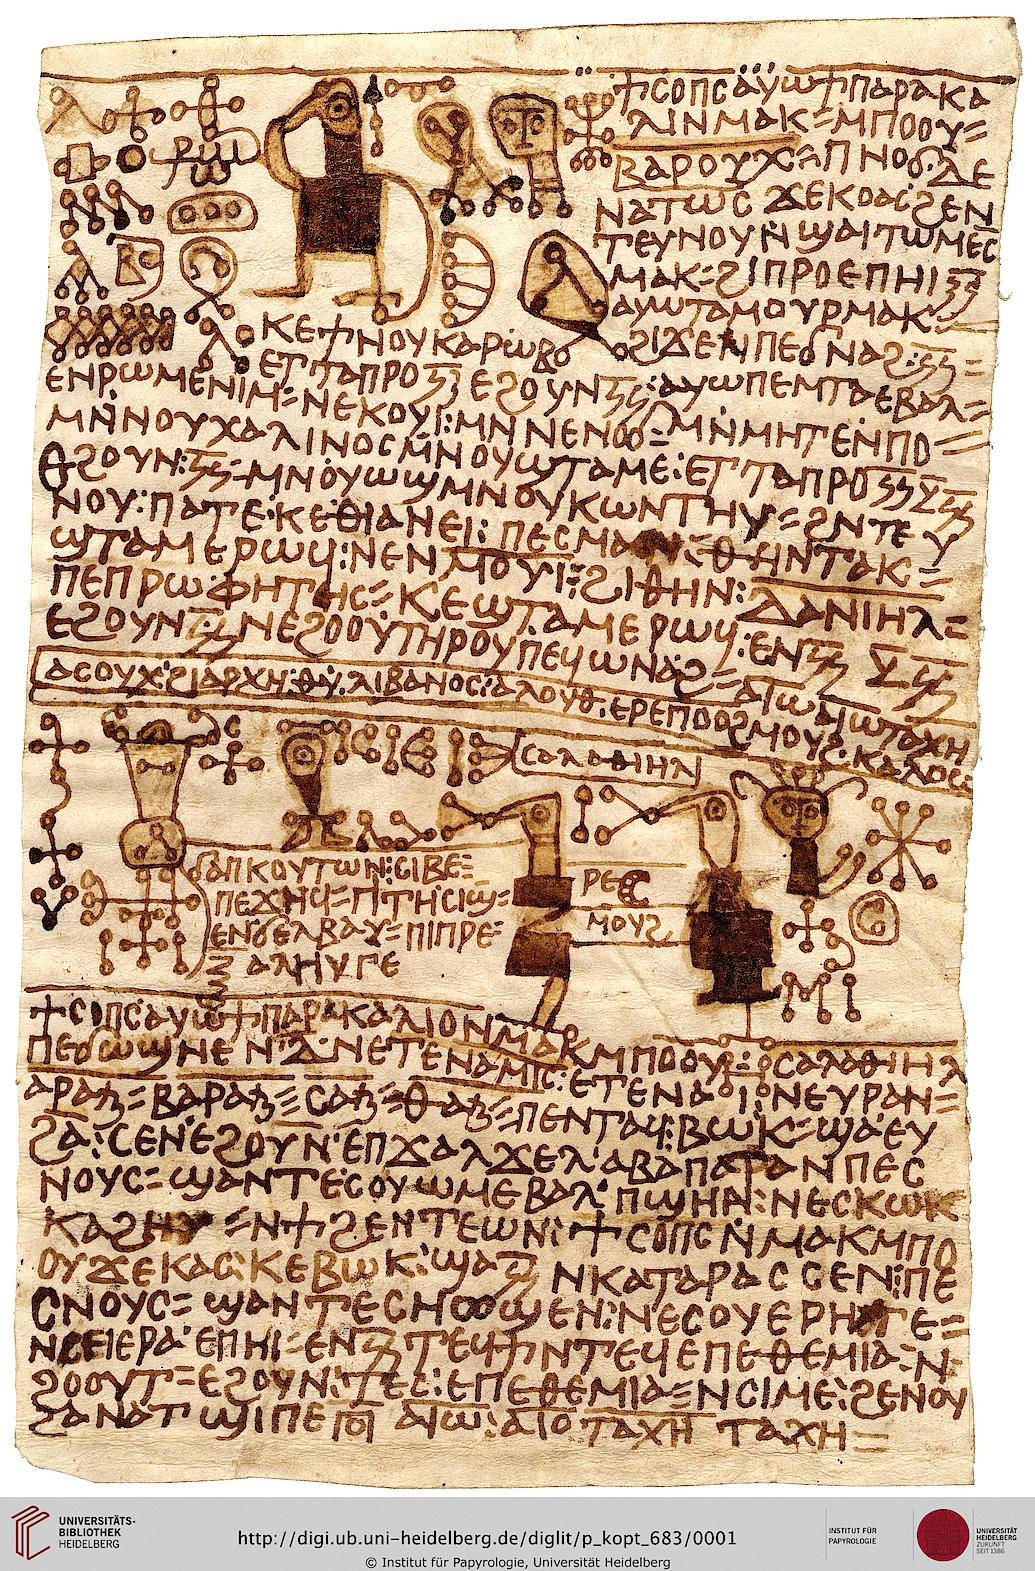 ϯⲥⲟⲡⲥⲁⲩⲱϯⲡⲁⲣⲁⲕⲁ
ⲗⲓⲛⲙⲁⲕ=ⲙⲡⲟⲟⲩ=
ⲃⲁⲣⲟⲩⲭ=ⲡⲛⲟϭ·ⲇⲉ
ⲛⲁⲧⲱⲥ ϫⲉⲕⲟⲁⲥϩⲉⲛ
ⲧⲉⲩⲛⲟⲩⲛ̇ϣⲁⲓⲧⲱⲙⲉⲥ
ⲙⲁⲕ=ϩⲓⲡⲣⲟⲉⲡⲏⲓ
ⲁⲩⲱⲧⲁⲙⲟⲩⲣⲙⲁⲕ:
ⲕⲉϯⲛⲟⲩⲕⲁⲣⲱⲃ
ϩⲓϫⲉⲛⲡⲉϭⲛⲁϩ:
ⲉⲧⲧⲁⲡⲣⲟ ⲉϩⲟⲩⲛ :ⲁⲩⲱⲡⲉⲙⲧⲁⲉⲃⲁⲗ=
ⲉⲛⲣⲱⲙⲉⲛⲓⲙ=ⲛⲉⲕⲟⲩⲓ:ⲙⲛⲛⲉⲛⲟϭ=ⲙⲛⲙⲏⲧⲉⲛⲡⲟ=
ⲙⲛ̇ⲛⲟⲩⲭⲁⲗⲓⲛⲟⲥⲙⲛⲟⲩϣⲧⲁⲙⲉ:ⲉⲧⲧⲁⲡⲣⲟ
ϩⲟⲩⲛ: =ⲙⲛⲟⲩⲱϣⲙⲛⲟⲩⲕⲱⲛⲧⲏⲩ=ϩⲛⲧⲉ
ⲛⲟⲩ:ⲡⲁⲧⲉ·ⲕⲉⲑⲓⲁⲛⲉⲓ:ⲡⲉⲥⲙⲁ ⲑⲏⲛⲧⲁⲕ=
ϣⲧⲁⲙⲉⲣⲱϥ:ⲛⲉⲛⲙⲟⲩⲓ=ϩⲓⲑⲏⲛ:ⲇⲁⲛⲓⲏⲗ=
ⲡⲉⲡⲣⲱⲫⲏⲧⲏⲥ=ⲕⲉϣⲧⲁⲙⲉⲣⲱϥ:ⲉⲛ
ⲉϩⲟⲩⲛ ⲛⲉϩⲟⲟⲩⲧⲏⲣⲟⲩⲡⲉϥⲱⲛⲁϩ=ⲁⲓⲱⲁⲓⲱⲧⲁⲭⲏ
ⲁⲥⲟⲩⲭ:ϩⲓⲁⲣⲭⲏ:ⲑⲩ:ⲗⲓⲃⲁⲛⲟⲥ:ⲁⲗⲟⲩⲑ:ⲉⲣⲉⲡⲟⲟϩⲙⲟⲩϩ:ⲕⲁⲗⲟⲥ:
ⲥⲁⲗⲁⲫⲓⲏⲗ
ϭⲁⲡⲕⲟⲩⲧⲱⲛ:ⲥⲓⲃⲉ=
ⲡⲉⲭⲏϥ=ⲡⲓⲧⲏⲥⲓϣ=
ⲉⲛϭⲉⲗⲃⲁⲩ=ⲡⲓⲡⲣⲉ=
ⲁⲗⲏⲩⲅⲉ
ⲣⲉ
ⲙⲟⲩϩ
ϯⲥⲟⲡⲥⲁⲩⲱϯⲡⲁⲣⲁⲕⲁⲗⲓⲟⲛⲙⲁⲕⲙⲡⲟⲟⲩ:ⲥⲁⲗⲁⲫⲓⲏⲗ
ⲡⲉϭⲱϣⲛⲉⲛⲁⲛⲉⲧⲉⲛⲁⲙⲓⲥ:ⲉⲧⲉⲛⲁⲓⲛⲉⲩⲣⲁⲛ=
ⲁⲣⲁⲍ=ⲃⲁⲣⲁⲍ=ⲥⲁⲍ=ⲑⲁⲍ=ⲡⲉⲛⲧⲁϥ:ⲃⲱⲕ=ϣⲁⲉⲩ
ϩⲁ:ⲥⲉⲛⲉϩⲟⲩⲛ·ⲉⲡϫⲁⲗϫⲉⲗ·ⲁⲃⲁⲡⲁⲧⲁⲛⲡⲉⲥ
ⲛⲟⲩⲥ=ϣⲁⲛⲧⲉⲥⲟⲩⲱⲙⲉⲃⲁⲗ·ⲡϣⲏⲛ:ⲛⲉⲥⲕⲱⲕ
ⲕⲁϩⲏⲩ=ⲛϯϩⲉⲛⲧⲉⲱⲛ:ϯⲥⲟⲡⲥⲛ̇ⲙⲁⲕⲙⲡⲟ
ⲟⲩϫⲉⲕⲁⲥ:ⲕⲉⲃⲱⲕ:ϣⲁ ⲛⲕⲁⲧⲁⲣⲁⲥⲥⲉⲛ:ⲡⲉ
ⲥⲛⲟⲩⲥ=ϣⲁⲛⲧⲉⲥⲏⲱϣⲉⲛ:ⲛⲉⲥⲟⲩⲉⲣⲏⲧⲉ=
ⲛⲥⲉⲓⲉⲣⲁ·ⲉⲡⲏⲓ=ⲉⲛ ⲧⲉϥϯⲛⲧⲉϥⲉⲡⲉⲑⲉⲙⲓⲁ=ⲛ:
ϩⲟⲟⲩⲧ=ⲉϩⲟⲩⲛ:ⲧⲉⲥ:ⲉⲡⲉⲑⲉⲙⲓⲁ=ⲛⲥⲓⲙⲉ:ϩⲉⲛⲟⲩ
ϩⲁⲛⲁⲧϣⲓⲡⲉ ⲁⲓⲱ:ⲁⲓⲟⲧⲁⲭⲏ ⲧⲁⲭⲏ=
UNIVERSITÄTS-
BIBLIOTHEK
HEIDELBERG
http://digi.ub.uni-heidelberg.de/diglit/p_kopt_683/0001
© Institut für Papyrologie, Universität Heidelberg
INSTITUT FÜR
PAPYROLOGIE
UNIVERSITÄT
HEIDELBERG
ZUKUNFT
SEIT 1386